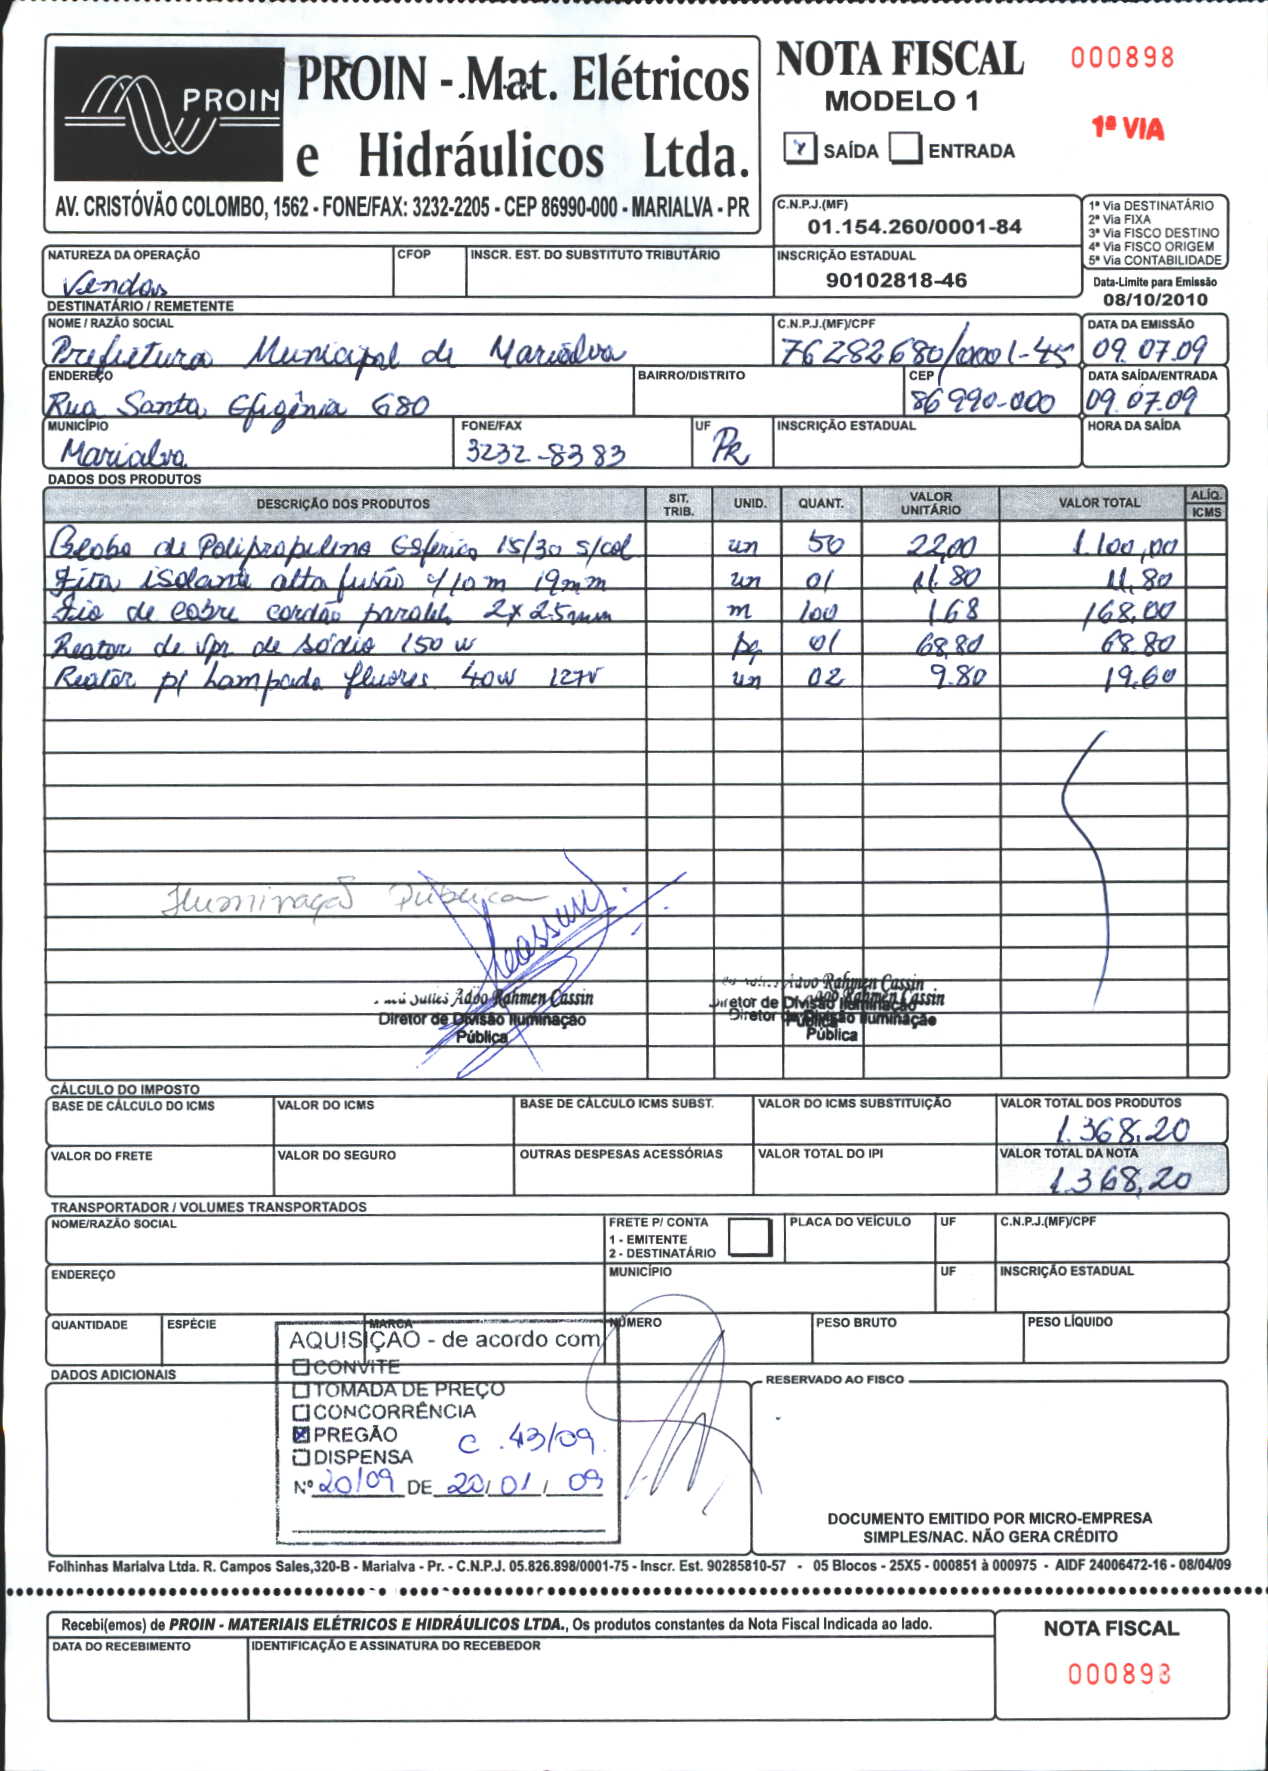 PROIN
PROIN - Mat. Elétricos
e Hidráulicos Ltda.
AV. CRISTÓVÃO COLOMBO, 1562 - FONE/FAX: 3232-2205 - CEP 86990-000 - MARIALVA - PR
NOTA FISCAL
MODELO 1
000898
1ª VIA
SAÍDA ENTRADA
C.N.P.J.(MF)
01.154.260/0001-84
1ª Via DESTINATÁRIO
2ª Via FIXA
3ª Via FISCO DESTINO
4ª Via FISCO ORIGEM
5ª Via CONTABILIDADE
NATUREZA DA OPERAÇÃO CFOP INSCR. EST. DO SUBSTITUTO TRIBUTÁRIO INSCRIÇÃO ESTADUAL
Vendas 90102818-46
Data-Limite para Emissão
08/10/2010
DESTINATÁRIO / REMETENTE
NOME / RAZÃO SOCIAL C.N.P.J.(MF)/CPF DATA DA EMISSÃO
Prefeitura Municipal de Marialva 76282680/0001-45 09.07.09
ENDEREÇO BAIRRO/DISTRITO CEP DATA SAÍDA/ENTRADA
Rua Santa Efigênia 680 86990-000 09.07.09
MUNICÍPIO FONE/FAX UF INSCRIÇÃO ESTADUAL HORA DA SAÍDA
Marialva 3232-8383 PR
DADOS DOS PRODUTOS
DESCRIÇÃO DOS PRODUTOS SIT. TRIB. UNID. QUANT. VALOR UNITÁRIO VALOR TOTAL ALÍQ. ICMS
Globo de Polipropileno Esferico 15/30 s/col un 50 22,00 1.100,00
Fita isolante alta fusão c/10m 19mm un 01 11.80 11,80
Fio de cobre cordão paralelo 2x2.5mm m 100 1,68 168,00
Reator de Vpr de sódio 150 w pç 01 68,80 68.80
Reator p/ Lampada fluores. 40w 127v un 02 9.80 19,60
Iluminação Pública
Adbo Rahmen Cassin
Diretor de Divisão Iluminação
Pública
Adbo Rahmen Cassin
Rahmen Cassin
Diretor de Divisão Iluminação
Diretor de Divisão Iluminação
Pública
Pública
CÁLCULO DO IMPOSTO
BASE DE CÁLCULO DO ICMS VALOR DO ICMS BASE DE CÁLCULO ICMS SUBST. VALOR DO ICMS SUBSTITUIÇÃO VALOR TOTAL DOS PRODUTOS
1.368,20
VALOR DO FRETE VALOR DO SEGURO OUTRAS DESPESAS ACESSÓRIAS VALOR TOTAL DO IPI VALOR TOTAL DA NOTA
1.368,20
TRANSPORTADOR / VOLUMES TRANSPORTADOS
NOME/RAZÃO SOCIAL FRETE P/ CONTA PLACA DO VEÍCULO UF C.N.P.J.(MF)/CPF
1 - EMITENTE
2 - DESTINATÁRIO
ENDEREÇO MUNICÍPIO UF INSCRIÇÃO ESTADUAL
QUANTIDADE ESPÉCIE MARCA NÚMERO PESO BRUTO PESO LÍQUIDO
AQUISIÇÃO - de acordo com
CONVITE
TOMADA DE PREÇO
CONCORRÊNCIA
PREGÃO C. 43/09
DISPENSA
Nº 20/09 DE 20/01/09
DADOS ADICIONAIS
RESERVADO AO FISCO
DOCUMENTO EMITIDO POR MICRO-EMPRESA
SIMPLES/NAC. NÃO GERA CRÉDITO
Folhinhas Marialva Ltda. R. Campos Sales,320-B - Marialva - Pr. - C.N.P.J. 05.826.898/0001-75 - Inscr. Est. 90285810-57 - 05 Blocos - 25X5 - 000851 à 000975 - AIDF 24006472-16 - 08/04/09
Recebi(emos) de PROIN - MATERIAIS ELÉTRICOS E HIDRÁULICOS LTDA., Os produtos constantes da Nota Fiscal Indicada ao lado.
DATA DO RECEBIMENTO IDENTIFICAÇÃO E ASSINATURA DO RECEBEDOR
NOTA FISCAL
000898